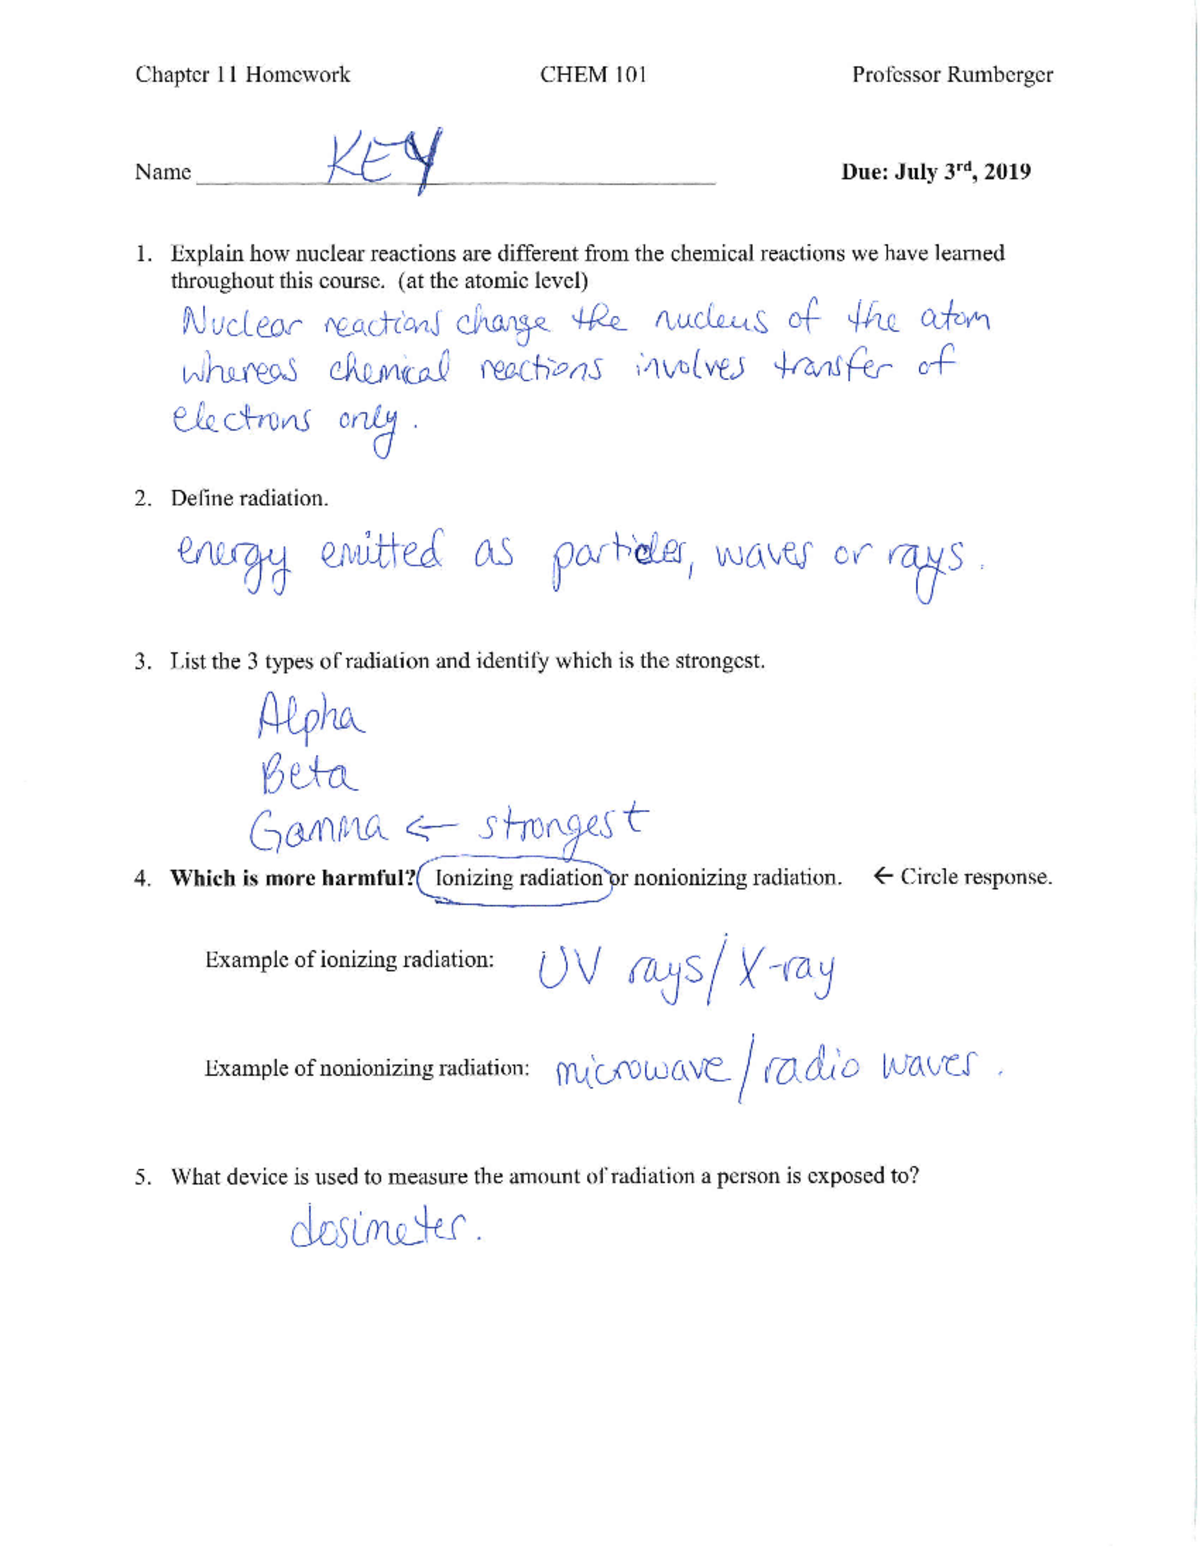 Chapter 11 Homework CHEM 101 Professor Rumberger
Name KEY Due: July 3rd, 2019
1. Explain how nuclear reactions are different from the chemical reactions we have learned
throughout this course. (at the atomic level)
Nuclear reactions change the nucleus of the atom
whereas chemical reactions involves transfer of
electrons only.
2. Define radiation.
energy emitted as particles, waves or rays.
3. List the 3 types of radiation and identify which is the strongest.
Alpha
Beta
Gamma ← strongest
4. Which is more harmful? Ionizing radiation or nonionizing radiation. ← Circle response.
Example of ionizing radiation: UV rays/X-ray
Example of nonionizing radiation: microwave/radio waves.
5. What device is used to measure the amount of radiation a person is exposed to?
dosimeter.